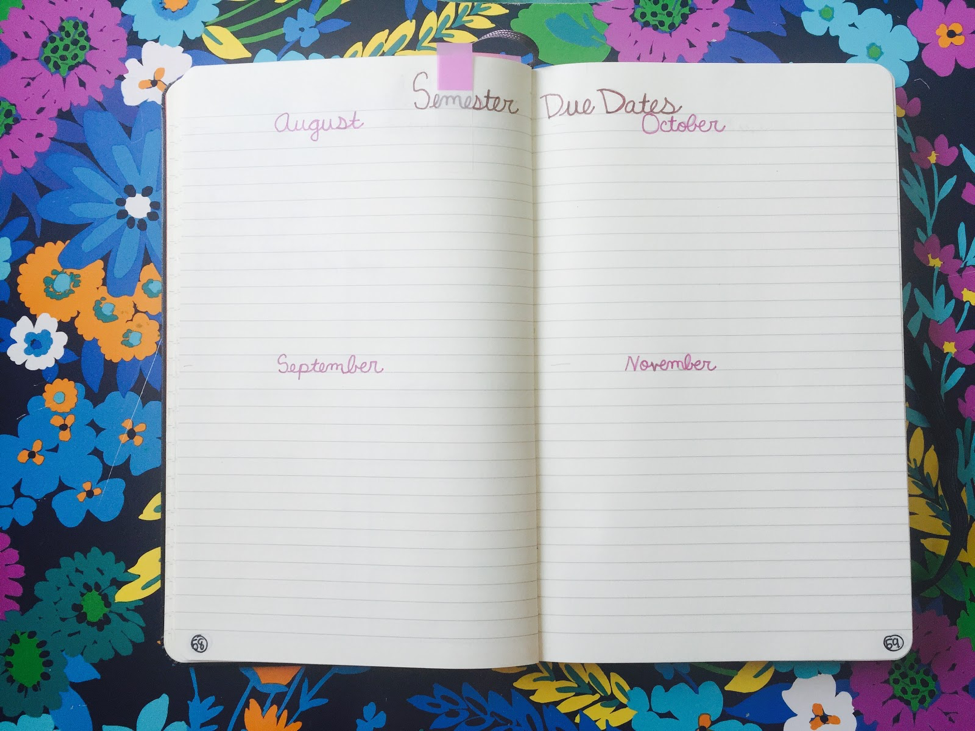 Semester Due Dates
August
September
68
October
November
69